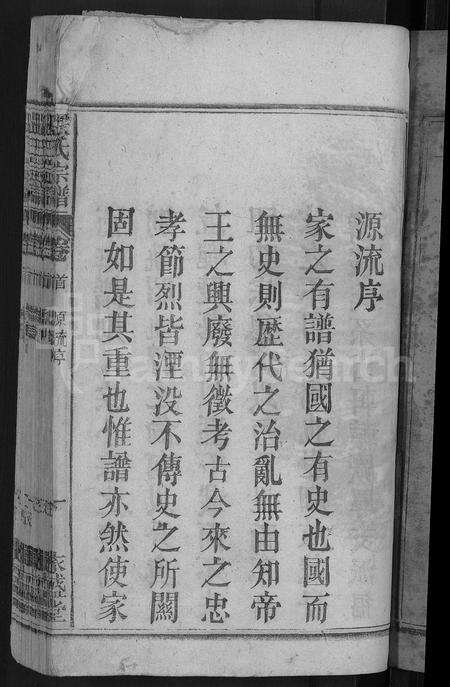 源流序
家之有譜猶國之有史也國而
無史則歷代之治亂無由知帝
王之興廢無徵考古今來之忠
孝節烈皆湮没不傳史之所關
固如是其重也惟譜亦然使家
氏宗譜
首
源流序